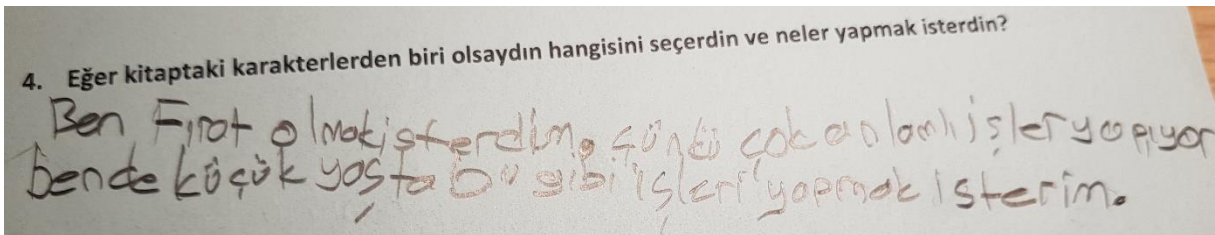 4. Eğer kitaptaki karakterlerden biri olsaydın hangisini seçerdin ve neler yapmak isterdin?
Ben Fırat olmak isterdim. çünkü çok anlamlı işler yapıyor
bende küçük yaşta bu gibi işleri yapmak isterim.